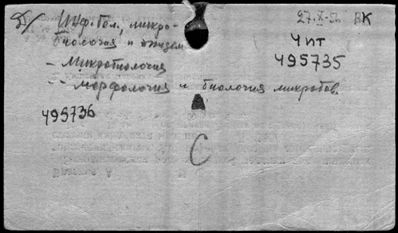 Инф. бол., микро-
биология и эпидем
27.X-52 ВК
Чит
495735
- Микробиология
-- Морфология и биология микробов.
495736
С